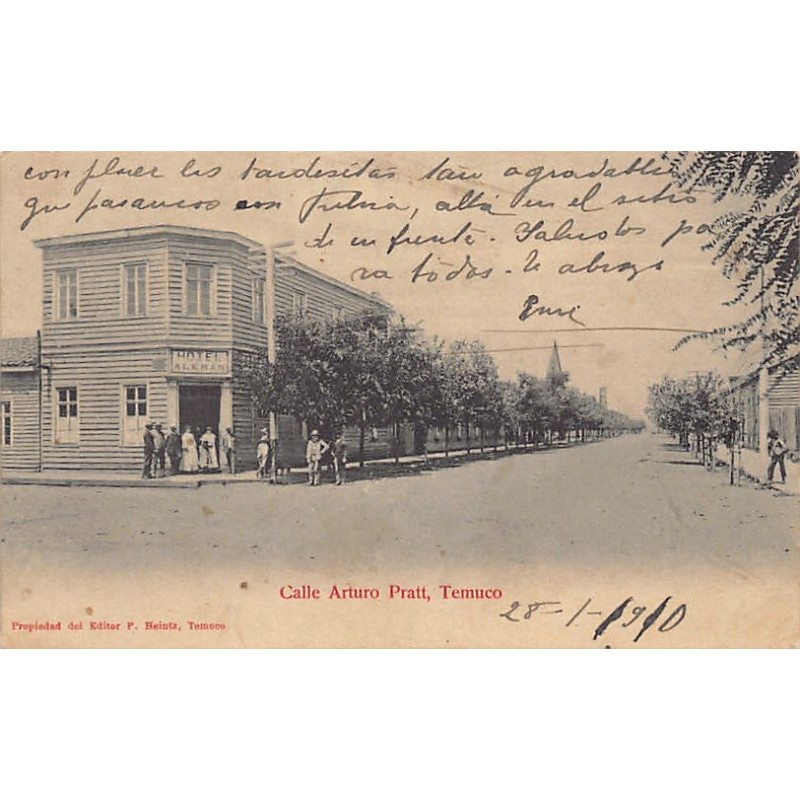 con placer las tardesitas tan agradables
que pasamos con Fulvia, allá en el sitio
de en frente. Saludos pa
ra todos. te abraza
HOTEL
ALEMAN
Calle Arturo Pratt, Temuco
28-1-1910
Propiedad del Editor P. Heintz, Temuco